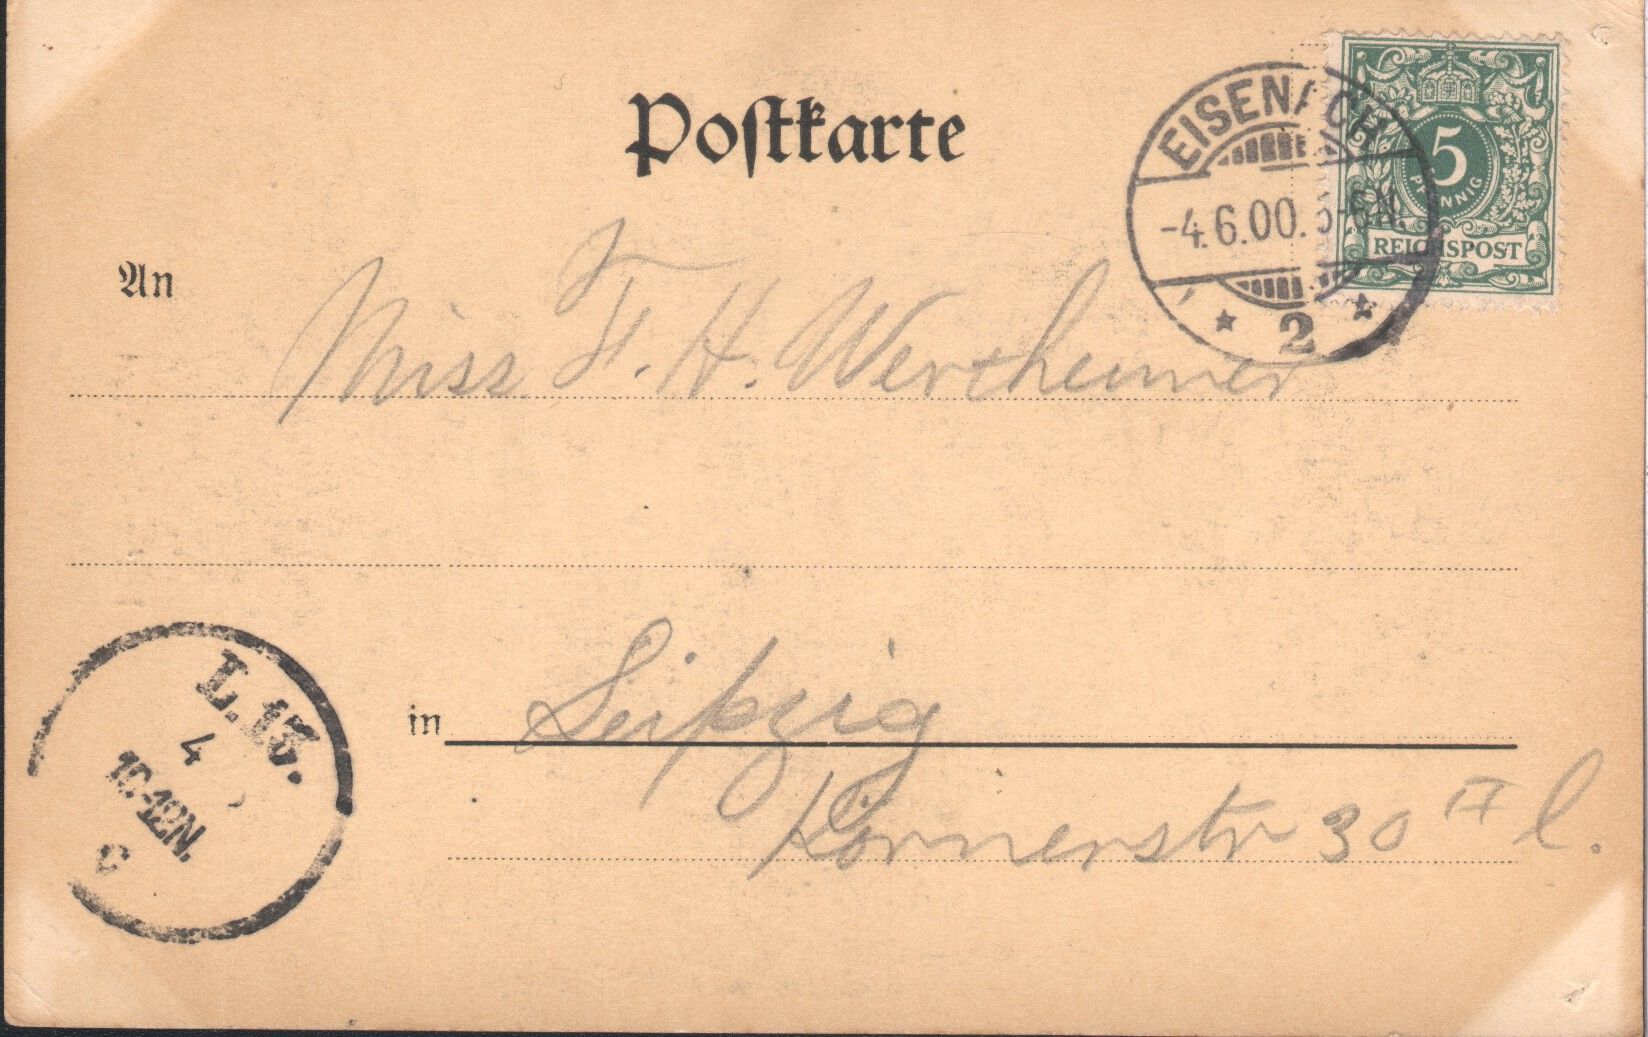 Postkarte
EISENACH
-4.6.00. 5-6N.
★ 2 ★
5
PFENNIG
REICHSPOST
An
Miss F. H. Wertheimer
in Leipzig
Körnerstr 30 II l.
L. 13.
4
10-12N.
c